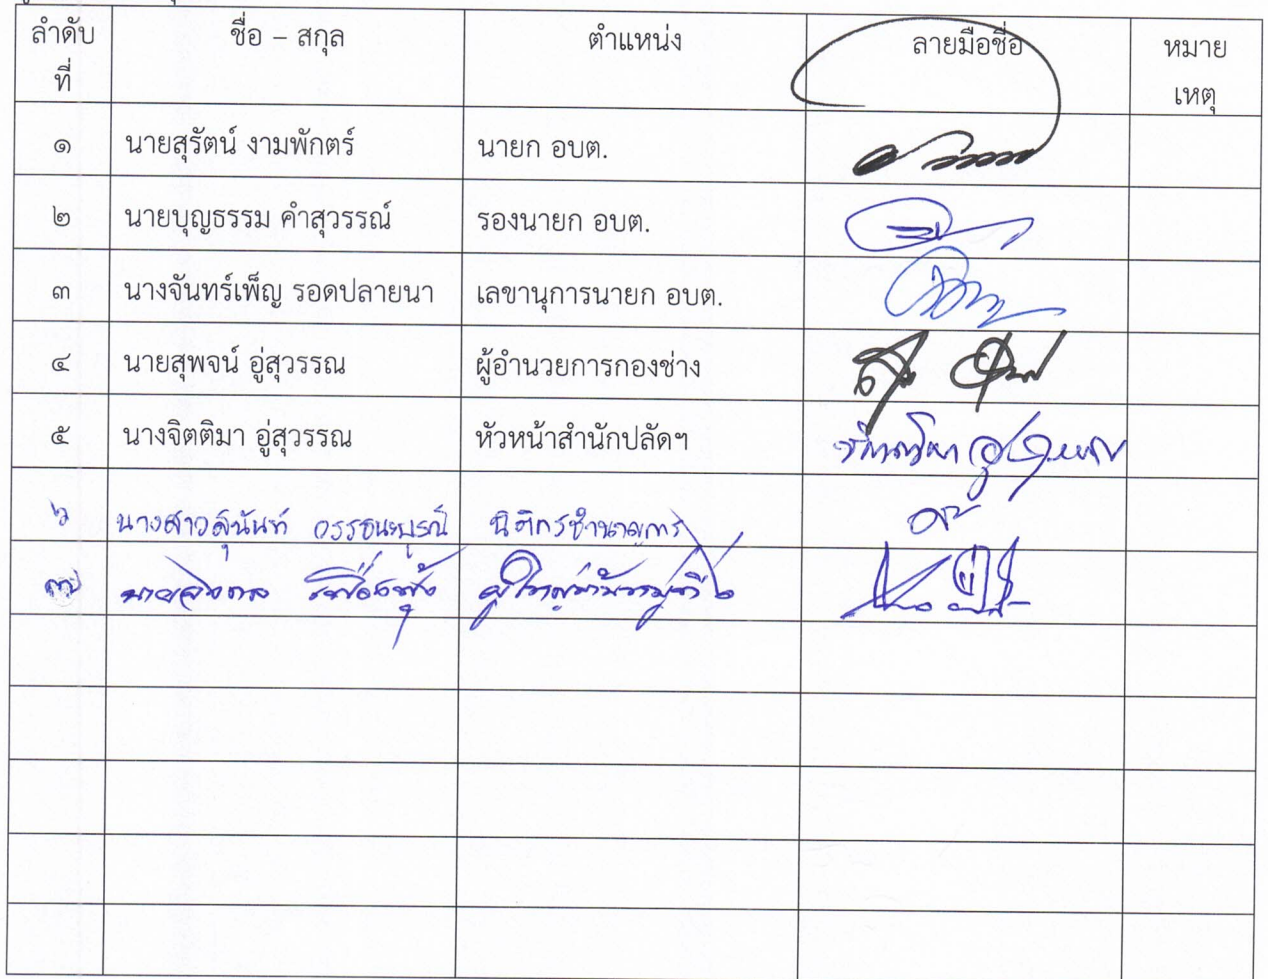 ลำดับ ชื่อ – สกุล ตำแหน่ง ลายมือชื่อ หมาย
ที่ เหตุ
๑ นายสุรัตน์ งามพักตร์ นายก อบต.
๒ นายบุญธรรม คำสุวรรณ์ รองนายก อบต.
๓ นางจันทร์เพ็ญ รอดปลายนา เลขานุการนายก อบต.
๔ นายสุพจน์ อู่สุวรรณ ผู้อำนวยการกองช่าง
๕ นางจิตติมา อู่สุวรรณ หัวหน้าสำนักปลัดฯ จิตติมา อู่สุวรรณ
๖ นางสาวสุนันท์ วรรธนะบูรณ์ นิติกรชำนาญการ
๗ ผู้ใหญ่บ้านหมู่ที่ ๖